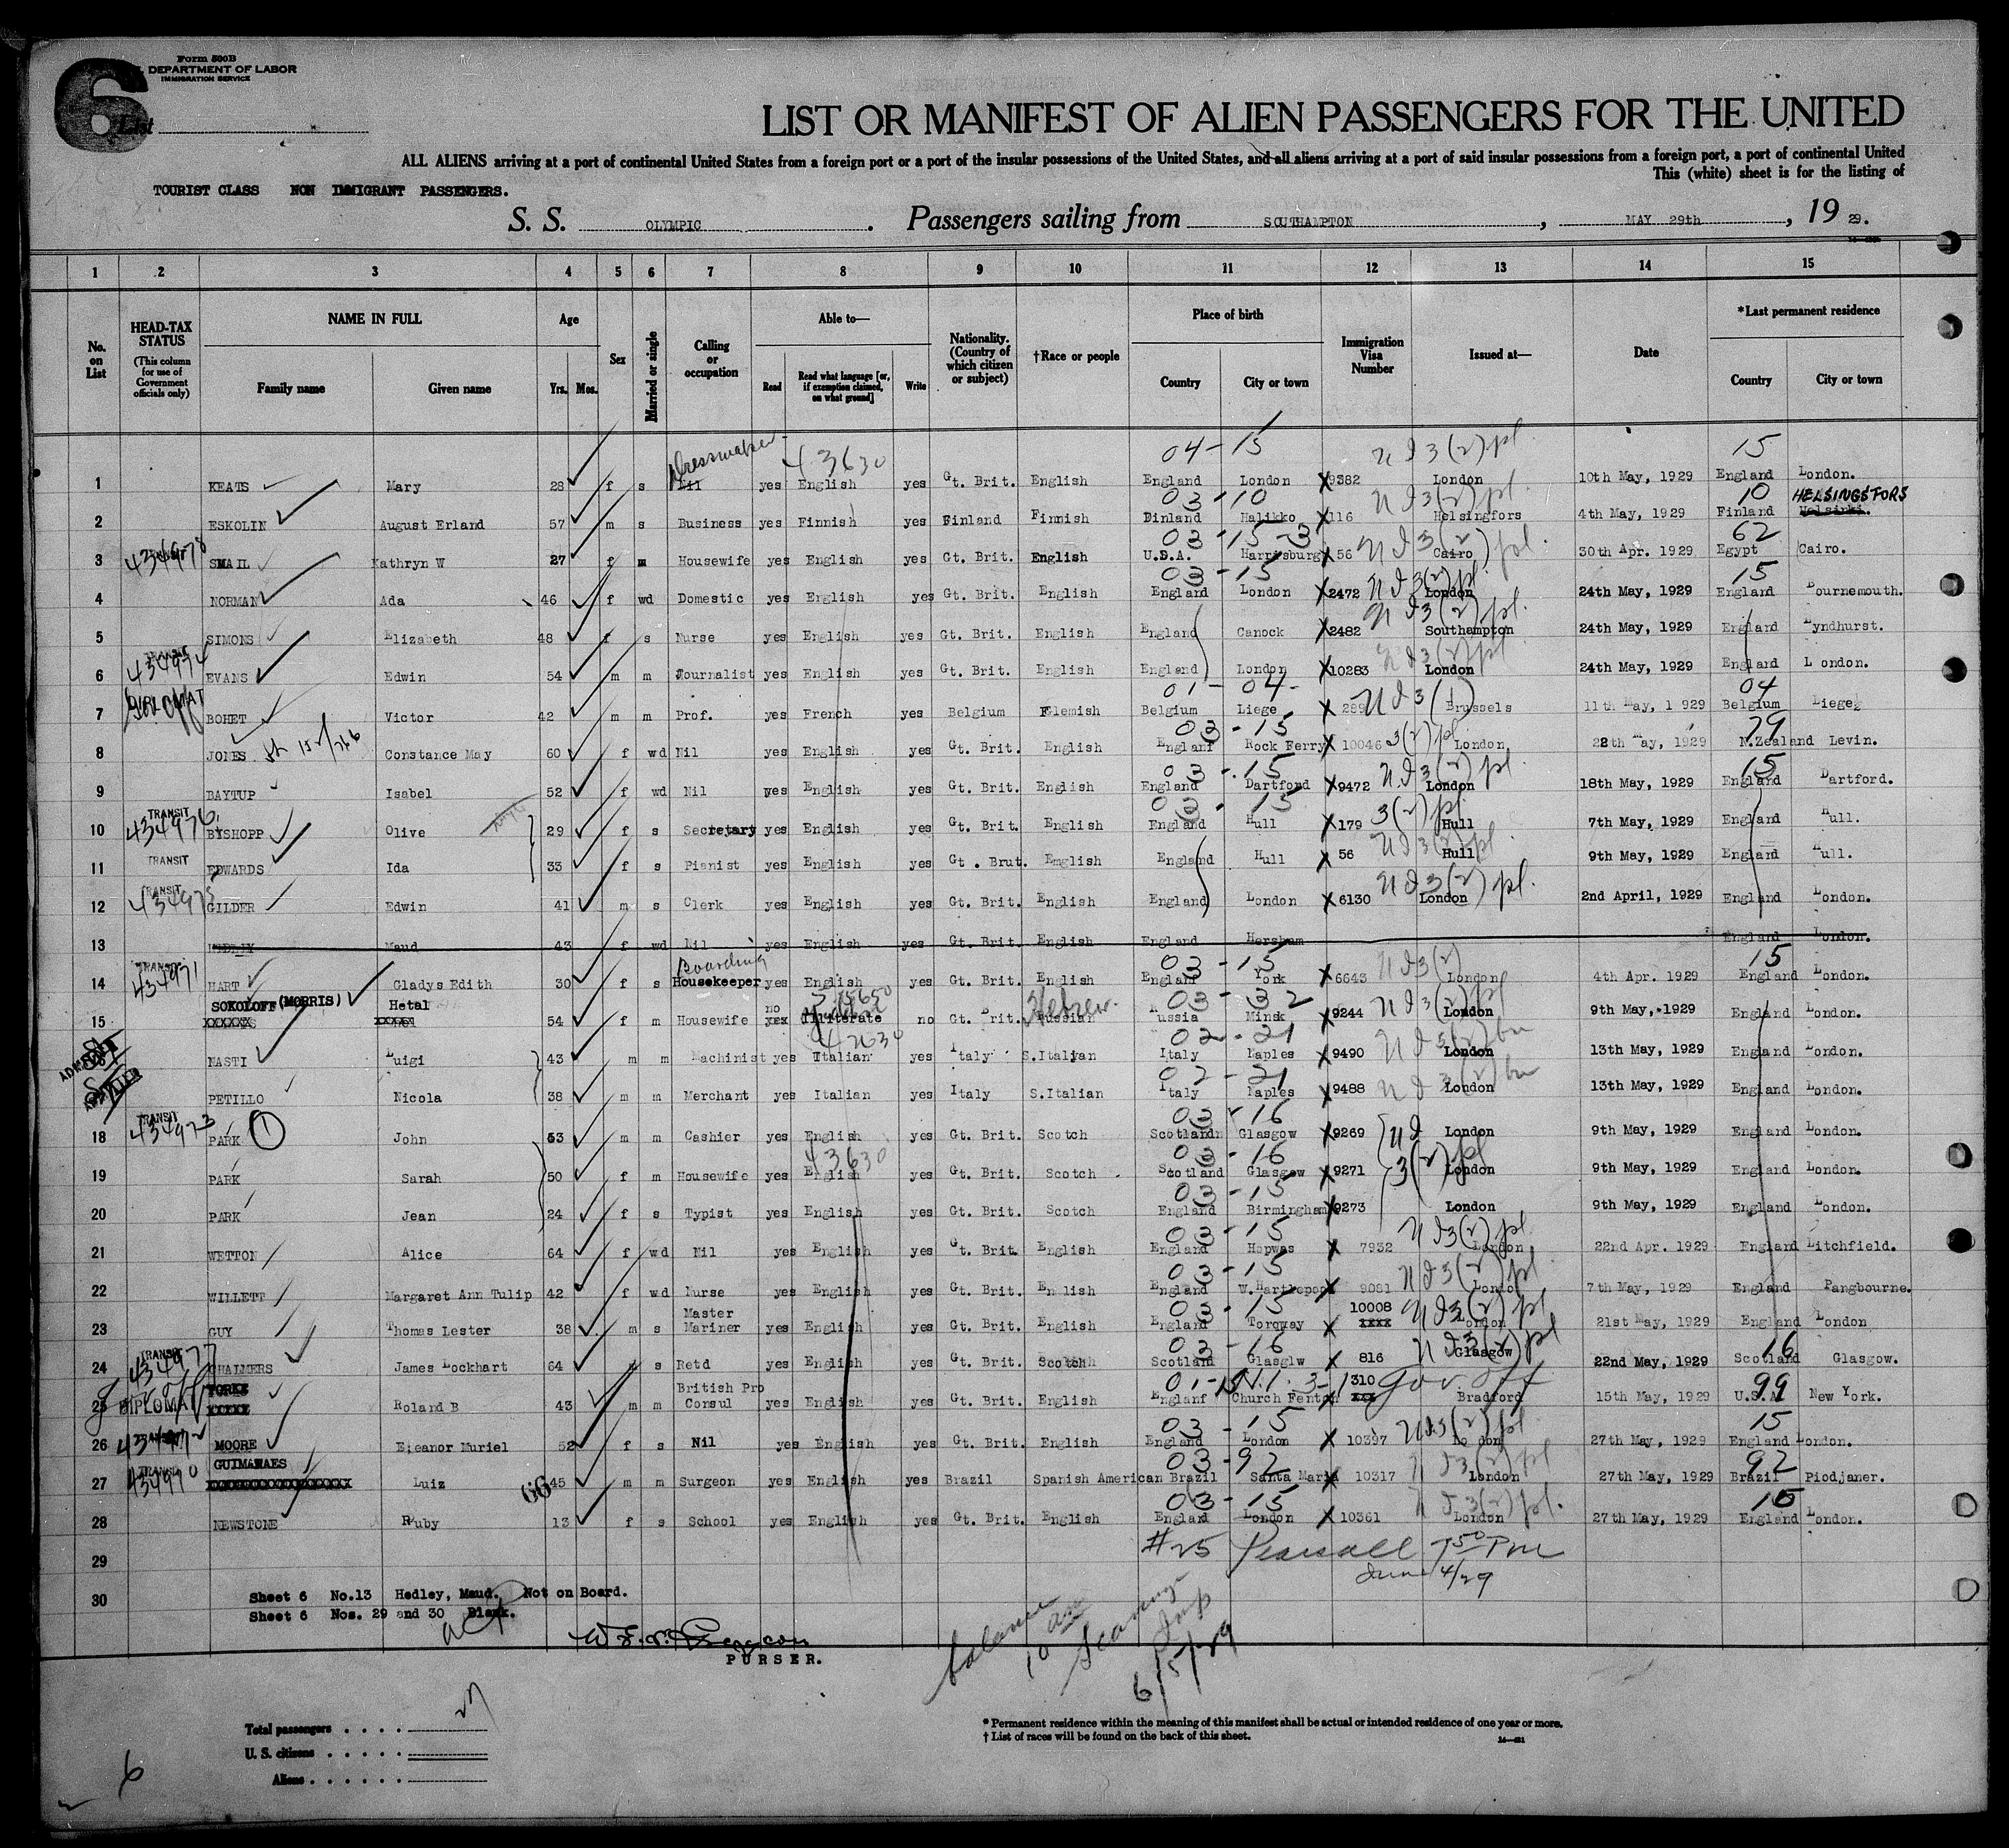 6
Form 500B
DEPARTMENT OF LABOR
IMMIGRATION SERVICE
List
LIST OR MANIFEST OF ALIEN PASSENGERS FOR THE UNITED
ALL ALIENS arriving at a port of continental United States from a foreign port or a port of the insular possessions of the United States, and all aliens arriving at a port of said insular possessions from a foreign port, a port of continental United
This (white) sheet is for the listing of
TOURIST CLASS NON IMMIGRANT PASSENGERS.
S. S. OLYMPIC. Passengers sailing from SOUTHAMPTON, MAY 29th, 19 29.
1 2 3 4 5 6 7 8 9 10 11 12 13 14 15
No. on List
HEAD-TAX STATUS (This column for use of Government officials only)
NAME IN FULL Family name Given name
Age Yrs. Mos.
Sex
Married or single
Calling or occupation
Able to— Read Read what language [or, if exemption claimed, on what ground] Write
Nationality. (Country of which citizen or subject)
†Race or people
Place of birth Country City or town
Immigration Visa Number
Issued at—
Date
*Last permanent residence Country City or town
Dressmaker 43630 04-15 15
1 KEATS Mary 28 f s Nil yes English yes Gt. Brit. English England London 9382 London 10th May, 1929 England London.
03-10 10 HELSINGSFORS
2 ESKOLIN August Erland 57 m s Business yes Finnish yes Finland Finnish Dinland Halikko 116 Helsingfors 4th May, 1929 Finland Helsinki.
03-15-3 62
3 434978 SMAIL Kathryn W 27 f m Housewife yes English yes Gt. Brit. English U.S.A. Harrisburg 56 Cairo 30th Apr. 1929 Egypt Cairo.
03-15 15
4 NORMAN Ada 46 f wd Domestic yes English yes Gt. Brit. English England London 2472 London 24th May, 1929 England Bournemouth.
5 SIMONS Elizabeth 48 f s Nurse yes English yes Gt. Brit. English England Canock 2482 Southampton 24th May, 1929 England Lyndhurst.
6 TRANSIT 434974 EVANS Edwin 54 m m Journalist yes English yes Gt. Brit. English England London 10283 London 24th May, 1929 England London.
01-04- 04
7 DIPLOMAT BOHET Victor 42 m m Prof. yes French yes Belgium Flemish Belgium Liege 289 Brussels 11th May, 1929 Belgium Liege
03-15 79
8 JONES Constance May 60 f wd Nil yes English yes Gt. Brit. English Englanf Rock Ferry 10046 London 28th May, 1929 N.Zealand Levin.
03-15 15
9 BAYTUP Isabel 52 f wd Nil yes English yes Gt. Brit. English England Dartford 9472 London 18th May, 1929 England Dartford.
03-15
10 TRANSIT 434976 BISHOPP Olive 29 f s Secretary yes English yes Gt. Brit. English England Hull 179 Hull 7th May, 1929 England Hull.
11 TRANSIT EDWARDS Ida 33 f s Pianist yes English yes Gt. Brut. English England Hull 56 Hull 9th May, 1929 England Hull.
12 TRANSIT 434975 GILDER Edwin 41 m s Clerk yes English yes Gt. Brit. English England London 6130 London 2nd April, 1929 England London.
13 HEDLEY Maud 43 f wd Nil yes English yes Gt. Brit. English England Hersham England London.
Boarding 03-15 15
14 TRANSIT 434971 HART Gladys Edith 30 f s Housekeeper yes English yes Gt. Brit. English Englanf York 6643 London 4th Apr. 1929 England London.
SOKOLOFF (MORRIS) Hetal no Hebrew 03-32
15 XXXXXX XXXXX 54 f m Housewife yes Illiterate no Gt. Brit. Russian Russia Minsk 9244 London 9th May, 1929 England London.
02-21
ADMITTED NASTI Luigi 43 m m Machinist yes Italian yes Italy S.Italian Italy Naples 9490 London 13th May, 1929 England London.
02-21
ADMITTED PETILLO Nicola 38 m m Merchant yes Italian yes Italy S.Italian Italy Naples 9488 London 13th May, 1929 England London.
03-16
18 TRANSIT 434973 PARK 1 John 53 m m Cashier yes English yes Gt. Brit. Scotch Scotlandn Glasgow 9269 London 9th May, 1929 England London.
43630 03-16
19 PARK Sarah 50 f m Housewife yes English yes Gt. Brit. Scotch Scotland Glasgow 9271 London 9th May, 1929 England London.
03-15
20 PARK Jean 24 f s Typist yes English yes Gt. Brit. Scotch England Birmingham 9273 London 9th May, 1929 England London.
03-15
21 WETTON Alice 64 f wd Nil yes English yes Gt. Brit. English England Hopwas 7932 London 22nd Apr. 1929 England Litchfield.
03-15
22 WILLETT Margaret Ann Tulip 42 f wd Nurse yes English yes Gt. Brit. English England W.Hartlepool 9081 London 7th May, 1929 England Pangbourne.
Master 03-15 10008
23 GUY Thomas Lester 38 m s Mariner yes English yes Gt. Brit. English England Torquay XXXX London 21st May, 1929 England London
03-16 16
24 TRANSIT 434977 CHALMERS James Lockhart 64 m s Retd yes English yes Gt. Brit. Scotch Scotland Glasglw 816 Glasgow 22nd May, 1929 Scotland Glasgow.
YORKE British Pro 310 Gov. Off 99
25 DIPLOMAT XXXXX Roland B 43 m m Consul yes English yes Gt. Brit. English Englanf Church Fenton XXX Bradford 15th May, 1929 U.S.A. New York.
03-15 15
26 TRANSIT MOORE Eleanor Muriel 52 f s Nil yes English yes Gt. Brit. English England London 10397 London 27th May, 1929 England London.
GUIMARAES 03-92 92
27 TRANSIT 434970 XXXXXXXXXXXXXXXXXX Luiz 66 45 m m Surgeon yes English yes Brazil Spanish American Brazil Santa Maria 10317 London 27th May, 1929 Brazil Piodjaner.
03-15 15
28 NEWSTONE Ruby 13 f s School yes English yes Gt. Brit. English England London 10361 London 27th May, 1929 England London.
29 #25 Pearsall 7 50 PM
June 4/29
30 Sheet 6 No.13 Hedley, Maud. Not on Board.
Sheet 6 Nos. 29 and 30 Blank.
balance 10 am
6/5/29
PURSER.
Total passengers . . . . 27
U. S. citizens . . . . .
Aliens . . . . . .
* Permanent residence within the meaning of this manifest shall be actual or intended residence of one year or more.
† List of races will be found on the back of this sheet.
6